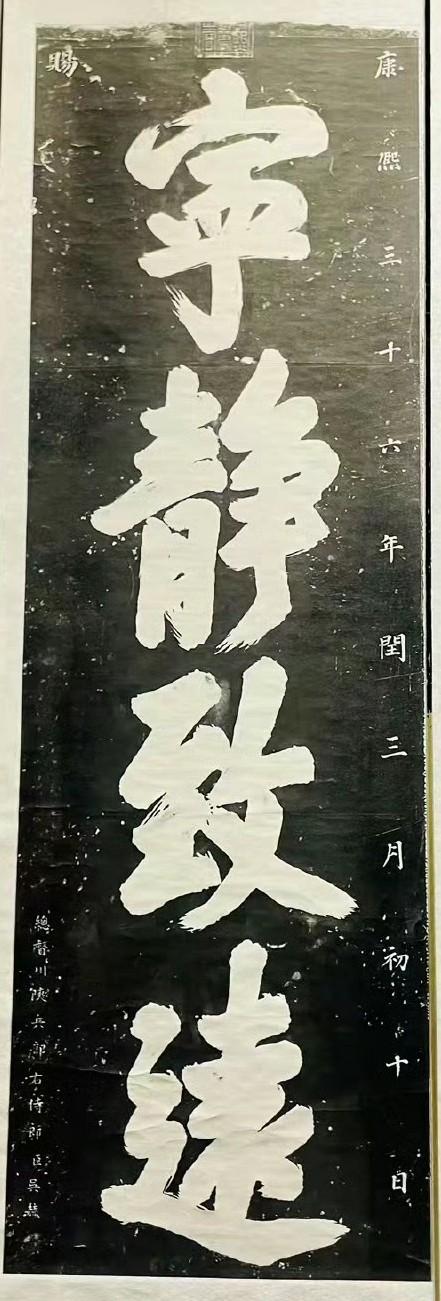 康熙三十六年閏三月初十日
寧静致遠
賜
總督川陕兵部右侍郎臣吳赫